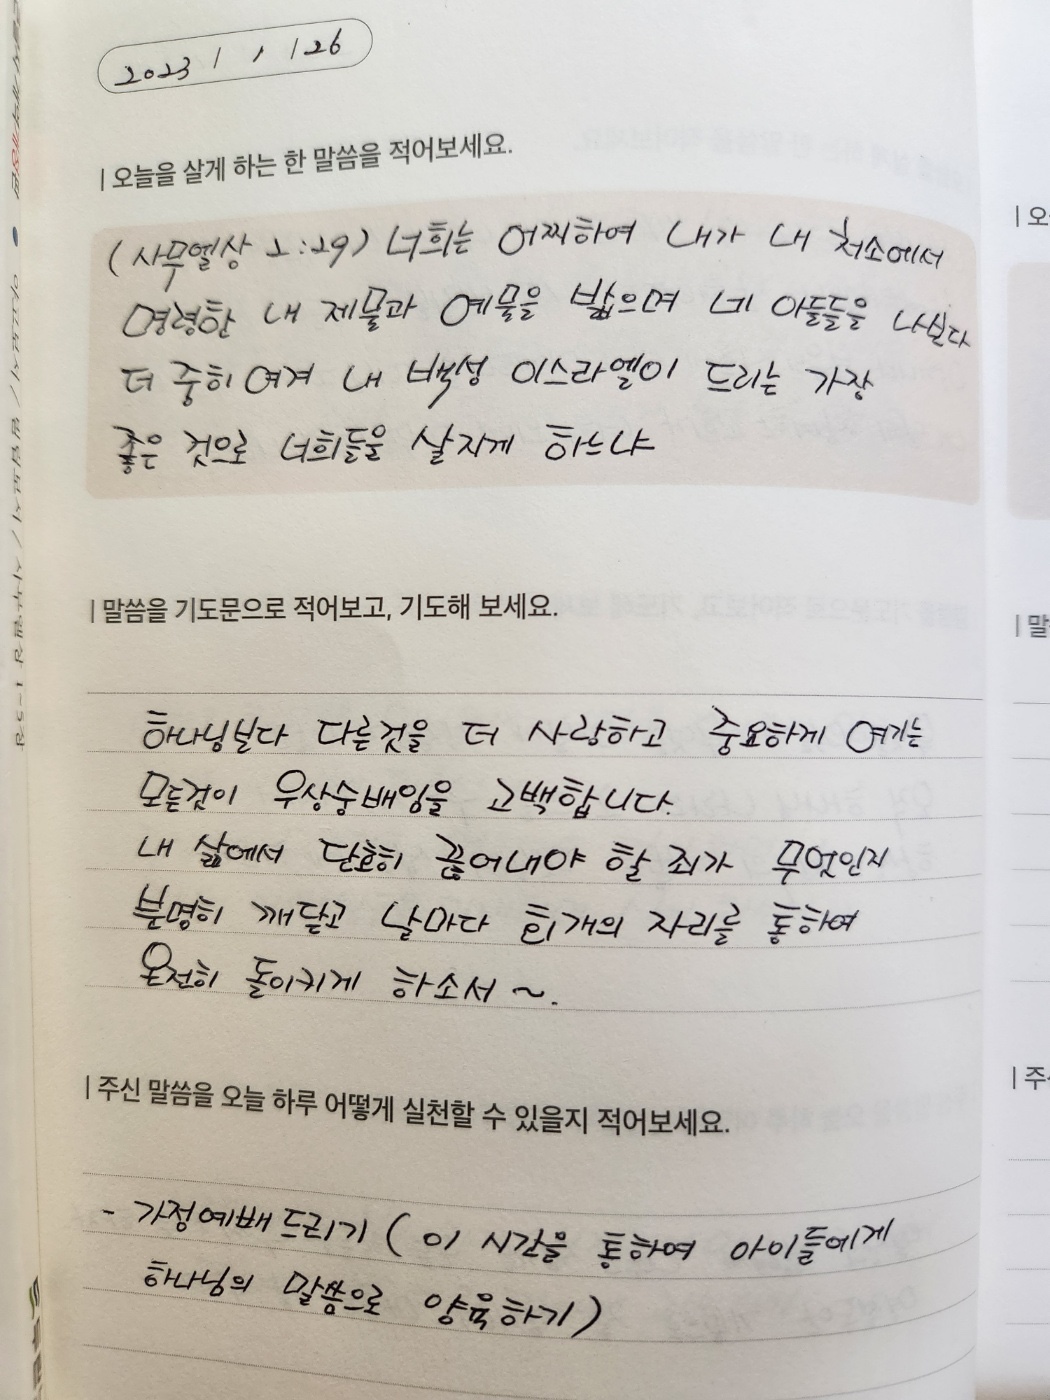 2023 / 1 / 26
| 오늘을 살게 하는 한 말씀을 적어보세요.
(사무엘상 2:29) 너희는 어찌하여 내가 내 처소에서
명령한 내 제물과 예물을 밟으며 네 아들들을 나보다
더 중히 여겨 내 백성 이스라엘이 드리는 가장
좋은 것으로 너희들을 살지게 하느냐
| 말씀을 기도문으로 적어보고, 기도해 보세요.
하나님보다 다른것을 더 사랑하고 중요하게 여기는
모든것이 우상숭배임을 고백합니다.
내 삶에서 단호히 끊어내야 할 죄가 무엇인지
분명히 깨닫고 날마다 회개의 자리를 통하여
온전히 돌이키게 하소서 ~.
| 주신 말씀을 오늘 하루 어떻게 실천할 수 있을지 적어보세요.
- 가정예배드리기 ( 이 시간을 통하여 아이들에게
하나님의 말씀으로 양육하기 )
| 오
| 말
| 주